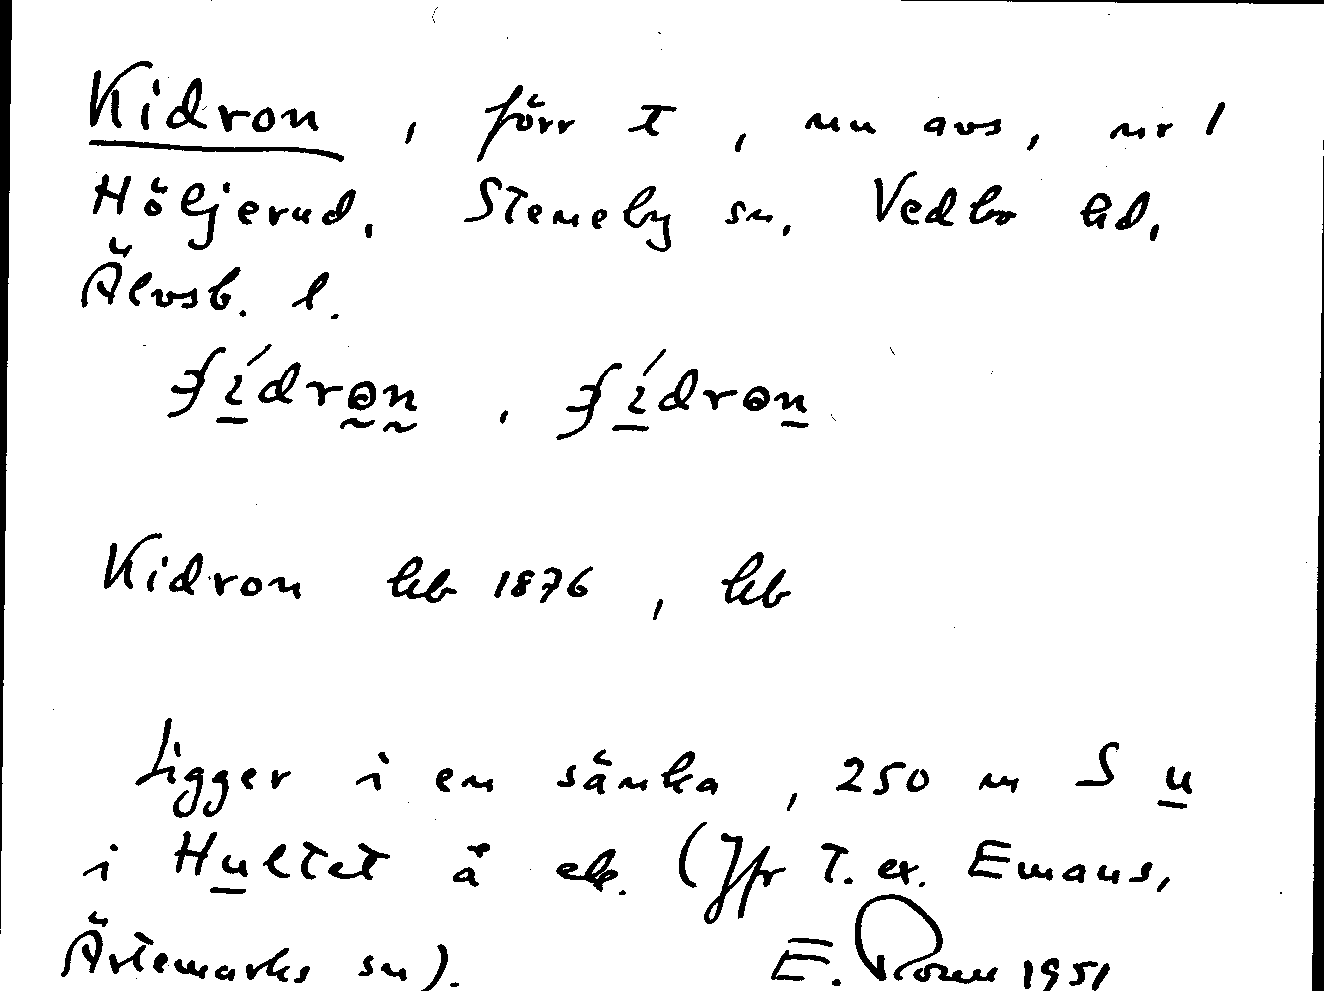 Kidron, förr t, nu avs, nr 1
Höljerud, Steneby sn, Vedbo hd,
Älvsb. l.
Kidron hb 1876, hb
Ligger i en sänka, 250 m S u
i Hultet å ek. (Jfr t. ex. Emaus,
Ärtemarks sn). E. 1951